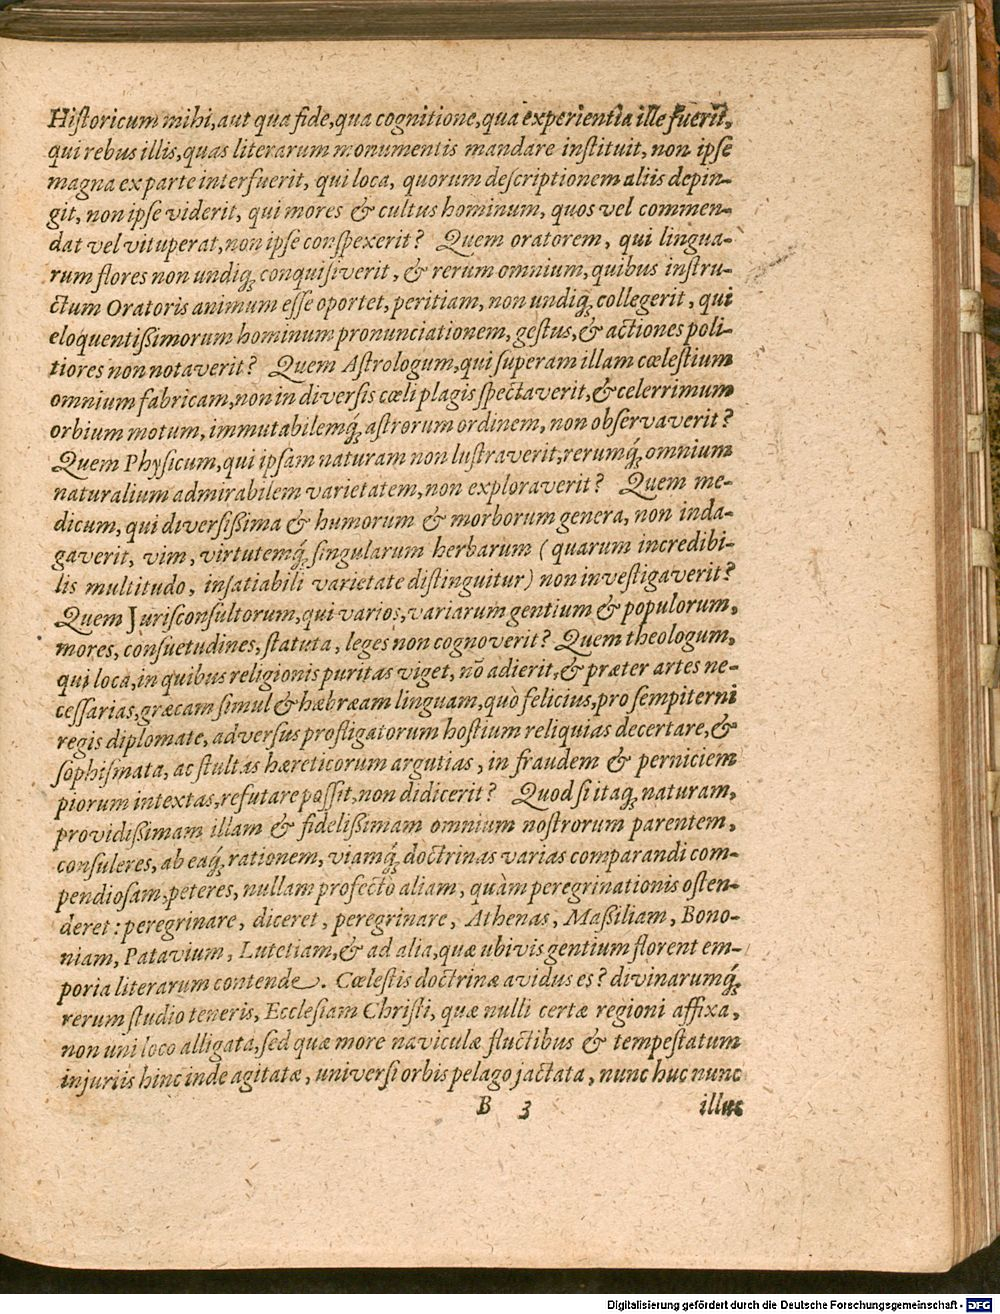 Hiſtoricum mihi, aut qua fide, qua cognitione, qua experientia ille fuerit,
qui rebus illis, quas literarum monumentis mandare inſtituit, non ipſe
magna ex parte interfuerit, qui loca, quorum deſcriptionem aliis depin-
git, non ipſe viderit, qui mores & cultus hominum, quos vel commen-
dat vel vituperat, non ipſe conſpexerit? Quem oratorem, qui lingua-
rum flores non undiq; conquiſiverit, & rerum omnium, quibus inſtru-
ctum Oratoris animum eſſe oportet, peritiam, non undiq; collegerit, qui
eloquentißimorum hominum pronunciationem, geſtus, & actiones poli-
tiores non notaverit? Quem Aſtrologum, qui ſuperam illam cœleſtium
omnium fabricam, non in diverſis cœli plagis ſpectaverit, & celerrimum
orbium motum, immutabilemq́; aſtrorum ordinem, non obſervaverit?
Quem Phyſicum, qui ipſam naturam non luſtraverit, rerumq́; omnium
naturalium admirabilem varietatem, non exploraverit? Quem me-
dicum, qui diverſißima & humorum & morborum genera, non inda-
gaverit, vim, virtutemq́; ſingularum herbarum ( quarum incredibi-
lis multitudo, inſatiabili varietate diſtinguitur) non inveſtigaverit?
Quem Juriſconſultorum, qui varios, variarum gentium & populorum,
mores, conſuetudines, ſtatuta, leges non cognoverit? Quem theologum,
qui loca, in quibus religionis puritas viget, nō adierit, & præter artes ne-
ceſſarias, græcam ſimul & hæbræam linguam, quò felicius, pro ſempiterni
regis diplomate, adverſus profligatorum hoſtium reliquias decertare, &
ſophiſmata, ac ſtultas hæreticorum argutias, in fraudem & perniciem
piorum intextas, refutare poſſit, non didicerit? Quod ſi itaq; naturam,
providißimam illam & fidelißimam omnium noſtrorum parentem,
conſuleres, ab eaq́; rationem, viamq́; doctrinas varias comparandi com-
pendioſam, peteres, nullam profectò aliam, quàm peregrinationis oſten-
deret: peregrinare, diceret, peregrinare, Athenas, Maßiliam, Bono-
niam, Patavium, Lutetiam, & ad alia, quæ ubivis gentium florent em-
poria literarum contende. Cœleſtis doctrinæ avidus es? divinarumq́;
rerum ſtudio teneris, Eccleſiam Chriſti, quæ nulli certæ regioni affixa,
non uni loco alligata, ſed quæ more naviculæ fluctibus & tempeſtatum
injuriis hinc inde agitatæ, univerſi orbis pelago jactata, nunc huc nunc
B 3 illuc
Digitalisierung gefördert durch die Deutsche Forschungsgemeinschaft - DFG